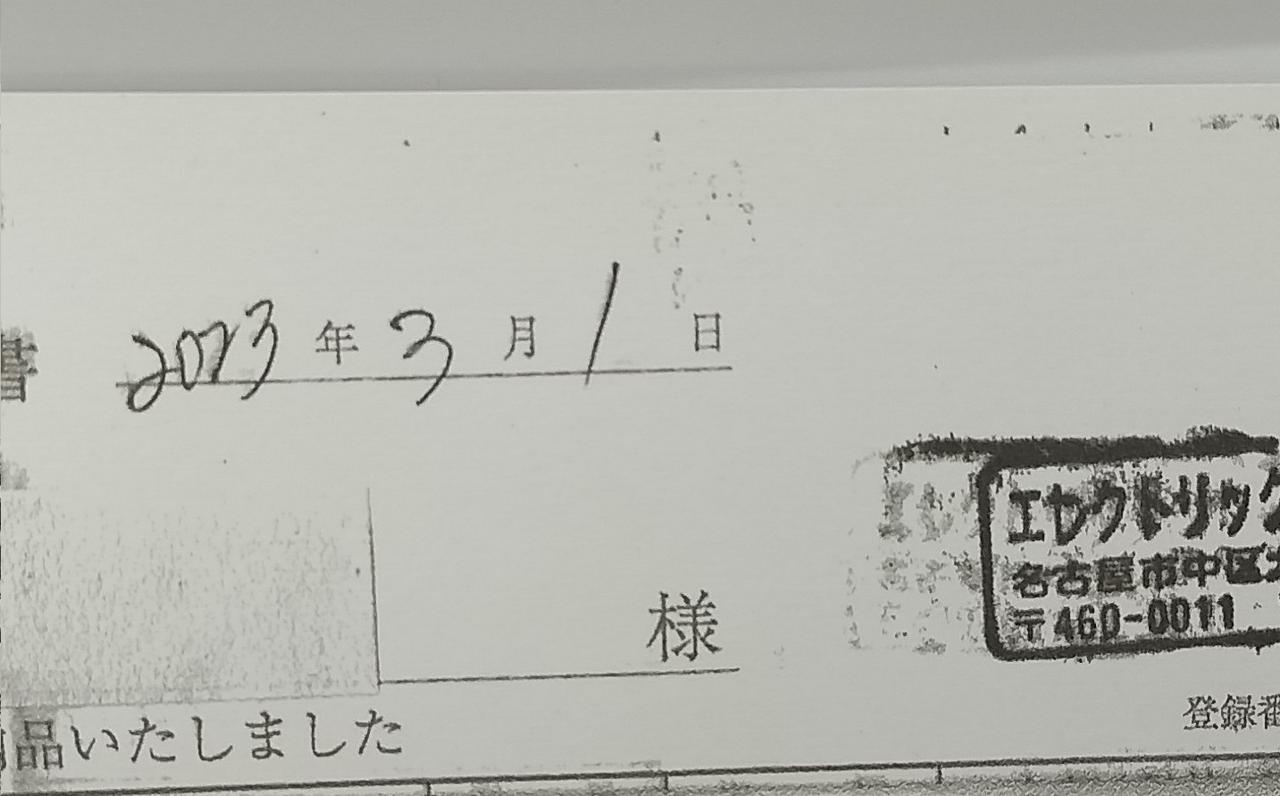 書
2023年3月1日
様
エレクトリック
名古屋市中区大
〒460-0011
品いたしました
登録番